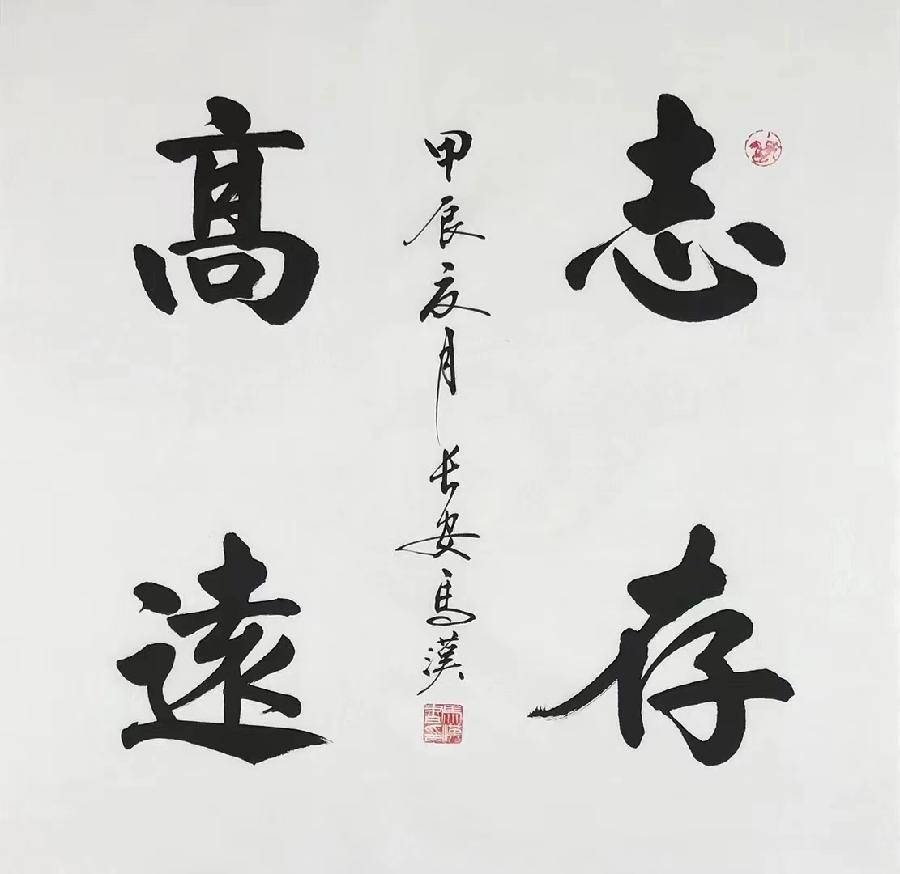 志存
髙遠
甲辰夏月长安馬漢